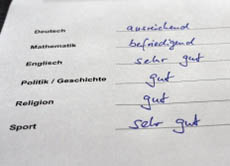 Deutsch ausreichend
Mathematik befriedigend
Englisch sehr gut
Politik / Geschichte gut
Religion gut
Sport sehr gut